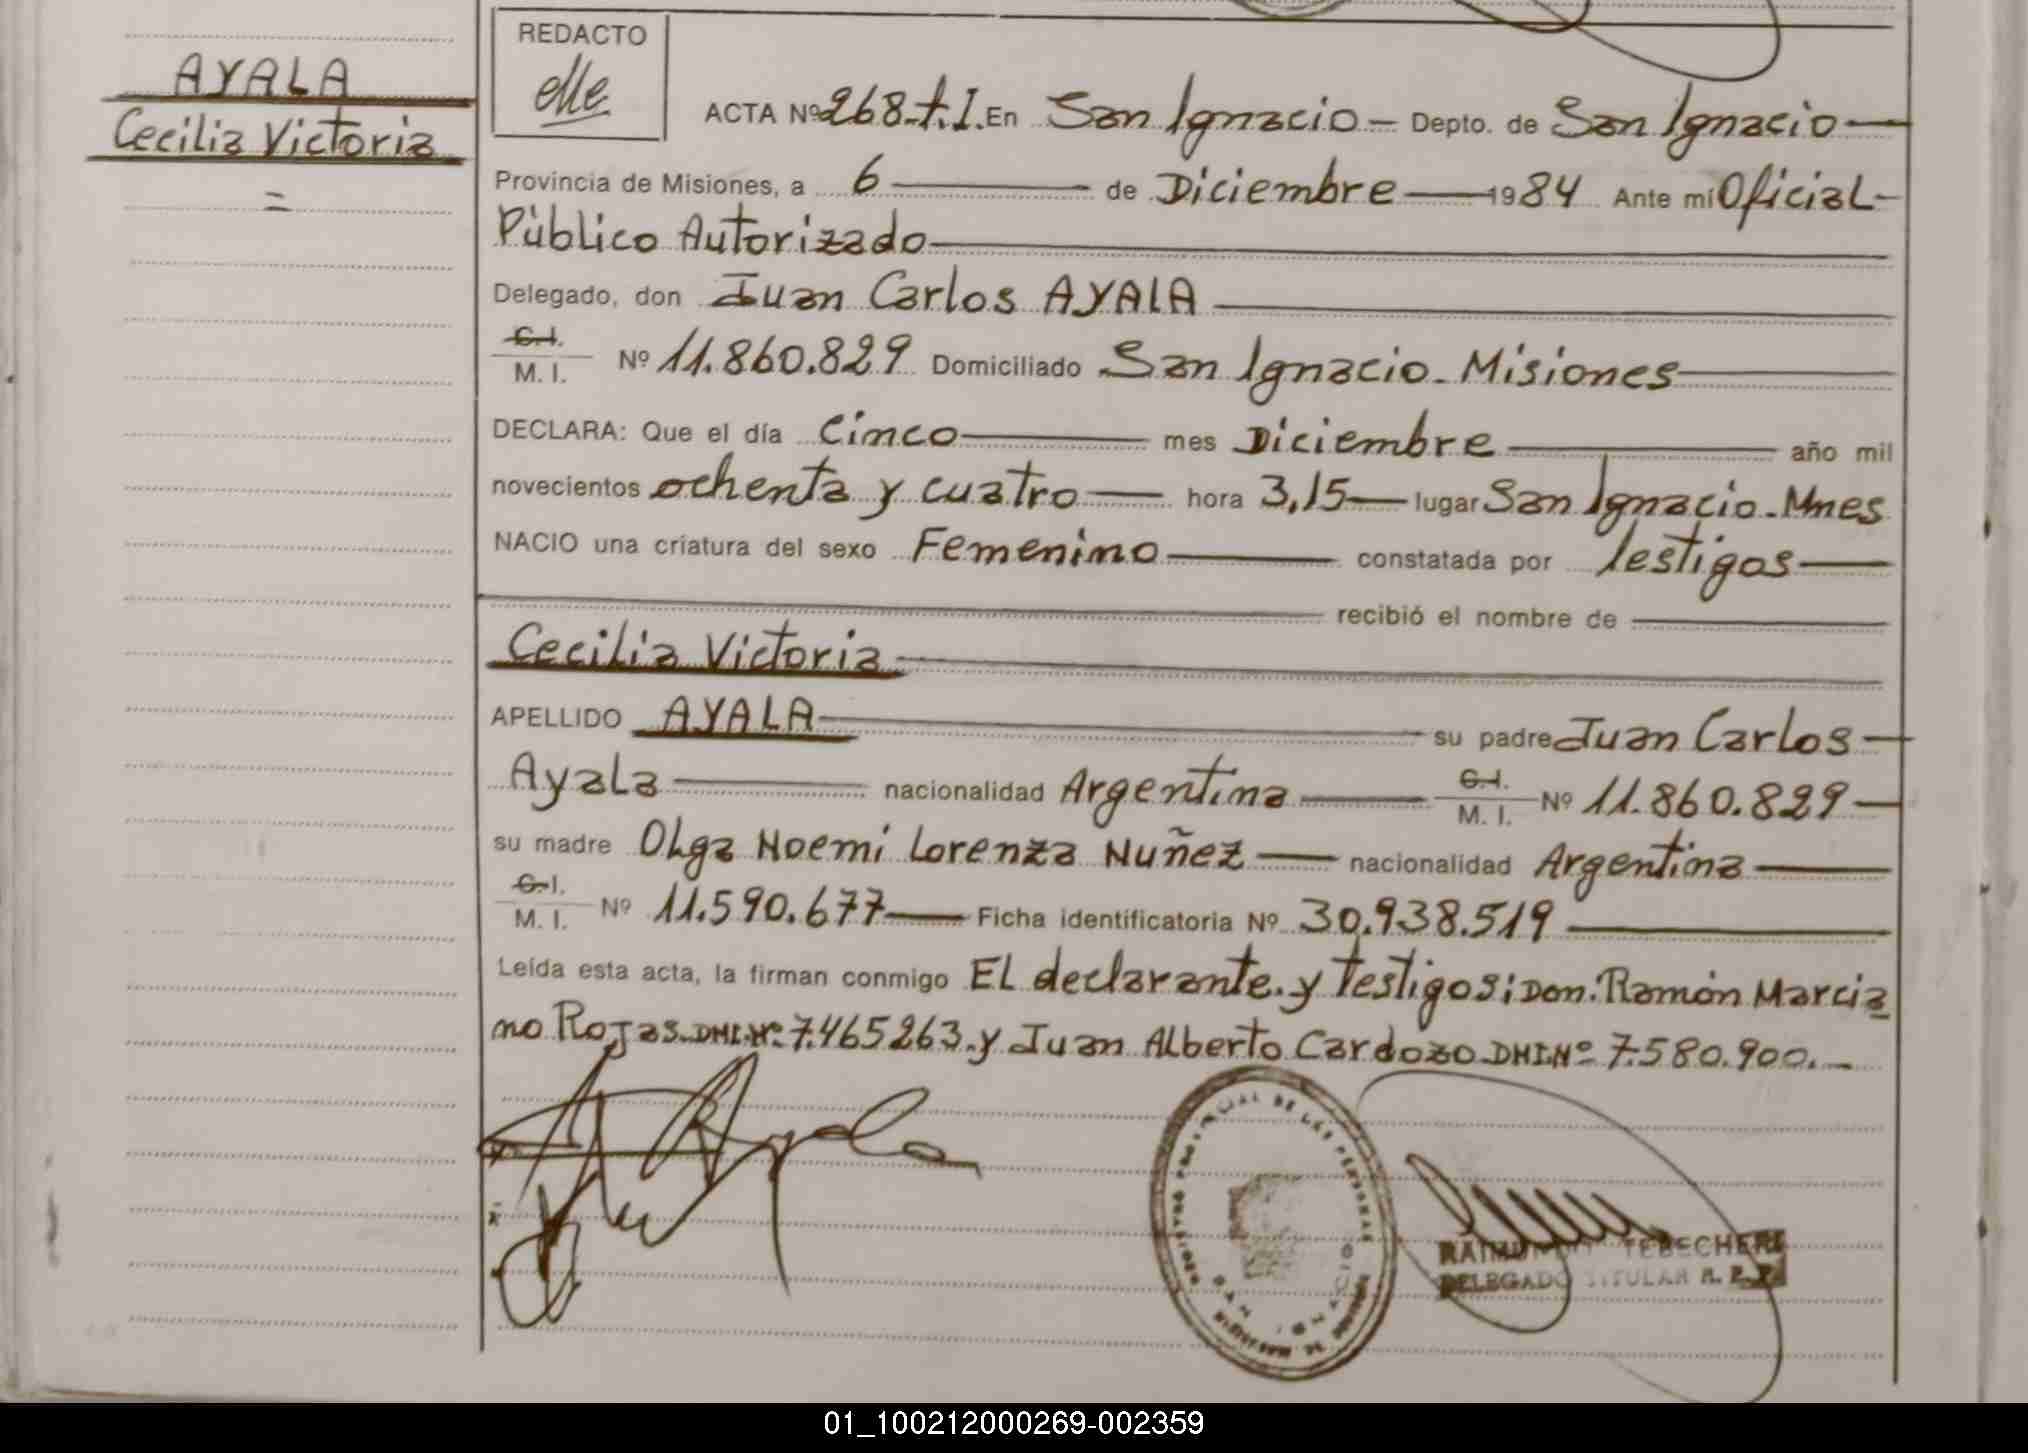 AYALA
Cecilia Victoria
=
REDACTO
ACTA Nº 268-t.I. En San Ignacio - Depto. de San Ignacio
Provincia de Misiones, a 6 de Diciembre 1984 Ante mí Oficial
Público Autorizado
Delegado, don Juan Carlos AYALA
C.I.
M. I. Nº 11.860.829 Domiciliado San Ignacio - Misiones
DECLARA: Que el día Cinco mes Diciembre año mil
novecientos ochenta y cuatro hora 3,15 lugar San Ignacio - Mnes
NACIO una criatura del sexo Femenino constatada por testigos
recibió el nombre de
Cecilia Victoria
APELLIDO AYALA su padre Juan Carlos
Ayala nacionalidad Argentina C.I. M. I. Nº 11.860.829
su madre Olga Noemi Lorenza Nuñez nacionalidad Argentina
C.I.
M. I. Nº 11.590.677 Ficha identificatoria Nº 30.938.519
Leída esta acta, la firman conmigo El declarante y testigos; Don. Ramón Marcia
no Rojas. DMI.Nº 7.465263.y Juan Alberto Cardozo DMI.Nº 7.580.900.
RAIMUNDO TEBECHERI
DELEGADO TITULAR R. P. P.
01_100212000269-002359